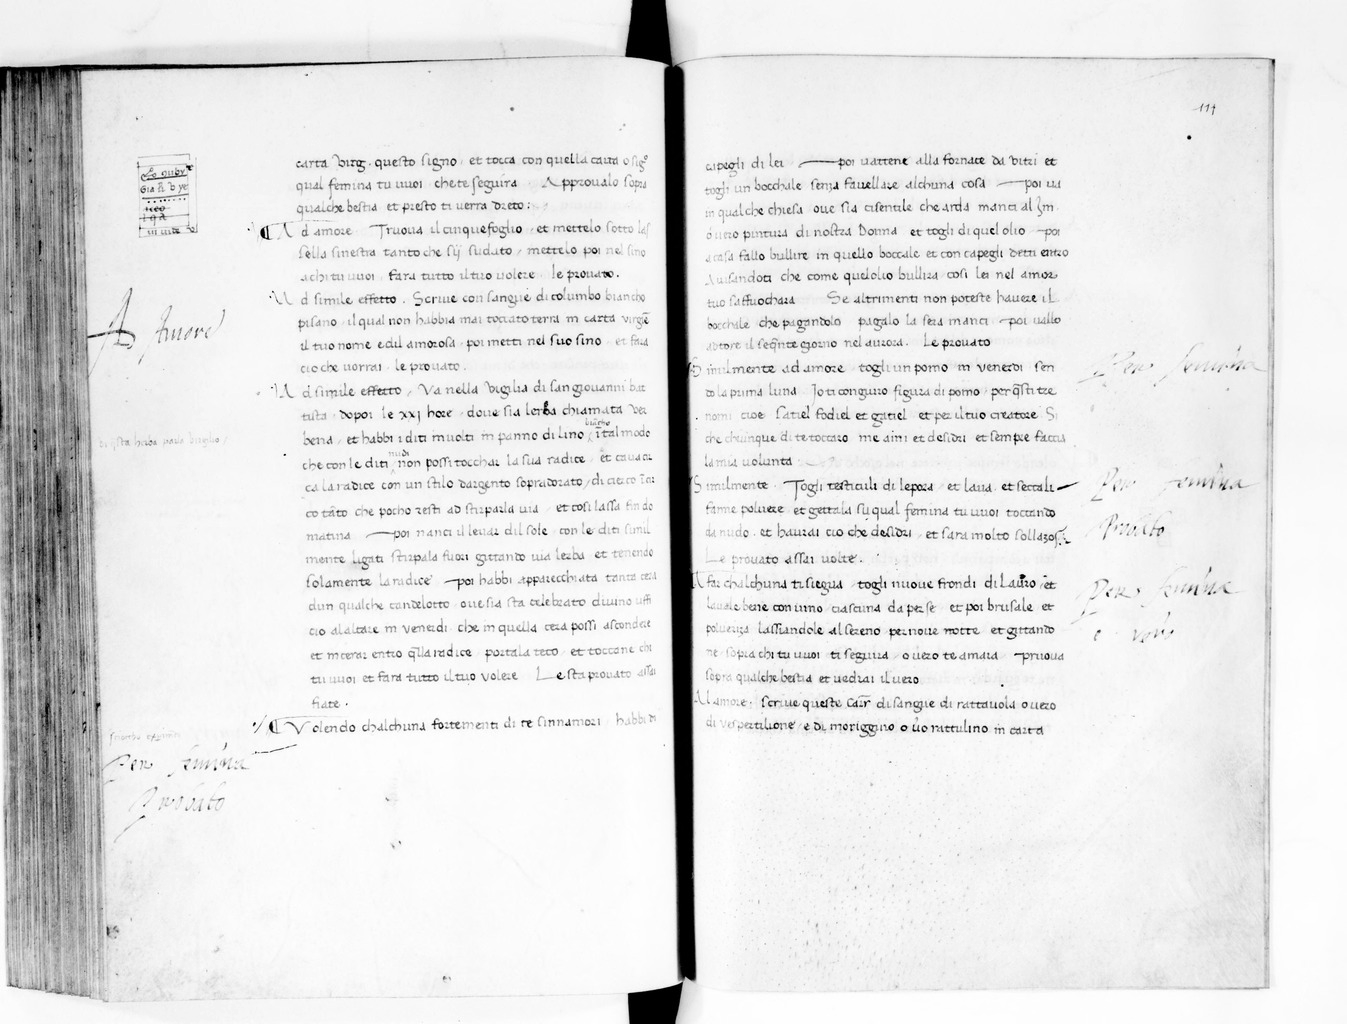 carta virg. questo signo, et tocca con quella carta o sigº
qual femina tu vuoi che te seguira. Approvalo sopra
qualche bestia et presto ti verra dreto:
Ad amore Truova il cinquefoglio, et mettelo sotto las
sella sinestra tanto che sij sudato, mettelo poi nel sino
achi tu vuoi, fara tutto il tuo volere. le provato.
Ad simile effetto. Scrive con sangue di columbo biancho
pisano, il qual non habbia mai toccato terra in carta virgīe
il tuo nome e dil amorosa, poi metti nel suo sino, et fara
cio che vorrai. le provato.
Ad simile effetto, Va nella vigilia di san giovanni bat
tista, dopoi le xxi hore, dove sia lerba chiamata ver
bena, et habbi i diti involti in panno di lino biācho ī tal modo
che con le diti nudi non possi tocchar la sua radice, et cava cir
ca la radice con un stilo dargento sopradorato, di circo īcir
co tāto che pocho resti ad stirparla via, et cosi lassa fin do
matina — poi nanci il levar dil sole, con le diti simil
mente ligati stirpala fuori gittando via lerba et tenendo
solamente la radice — poi habbi apparecchiata tanta cera
dun qualche candelotto, ove sia sta celebrato divino uffi
cio al altare in venerdi che in quella cera possi ascondere
et incerar entro qlla radice portala teco, et toccane chi
tu vuoi et fara tutto il tuo volere Le sta provato assai
fiate.
Volendo chalchuna fortementi di te sinnamori, habbi di
A Amore
di qsta herba parla virgilio
Per femina
Provato
114
capegli di lei — poi vattene alla fornace da vitri et
togli un bocchale senza favellare alchuna cosa — poi va
in qualche chiesa ove sia cisentile che arda manci al Im.
overo pintura di nostra Donna et togli di quel olio — poi
a casa fallo bullire in quello boccale et con capegli detti entro
Avisandoti che come quelolio bullira cosi lei nel amor
tuo saffuochara Se altrimenti non poteste havere il
bocchale che pagandolo pagalo la sera nanci — poi vallo
adtore il seqnte giorno nel aurora. Le provato
Similmente ad amore togli un pomo in venerdi sen
do la prima luna Jo ti conguro figura di pomo, per qsti tre
nomi cioe Satiel fodiel et gatiel et per il tuo creatore Si
che chiunque di te toccaro me ami et desidri et sempre faccia
la mia volunta
Similmente. Togli testiculi di lepora, et lava, et seccali —
fanne polvere et gettala sij qual femina tu vuoi toccando
da nudo, et haurai cio che desidri, et sara molto sollazos
Le provato assai volte.
A far chalchuna ti siegua togli nuove frondi di Lauro et
lavale bene con vino ciascuna da per se et poi brusale et
polveriza lassiandole al sereno per nove notte et gittando
ne sopra chi tu vuoi ti seguira, overo te amara — pruova
sopra qualche bestia et vedrai il vero
Al amore. scrive queste Carr di sangue di rattavola overo
di vespertilione, e di moriggino o v̄o rattulino in carta
Per femina
Per femina
Provato
Per femina